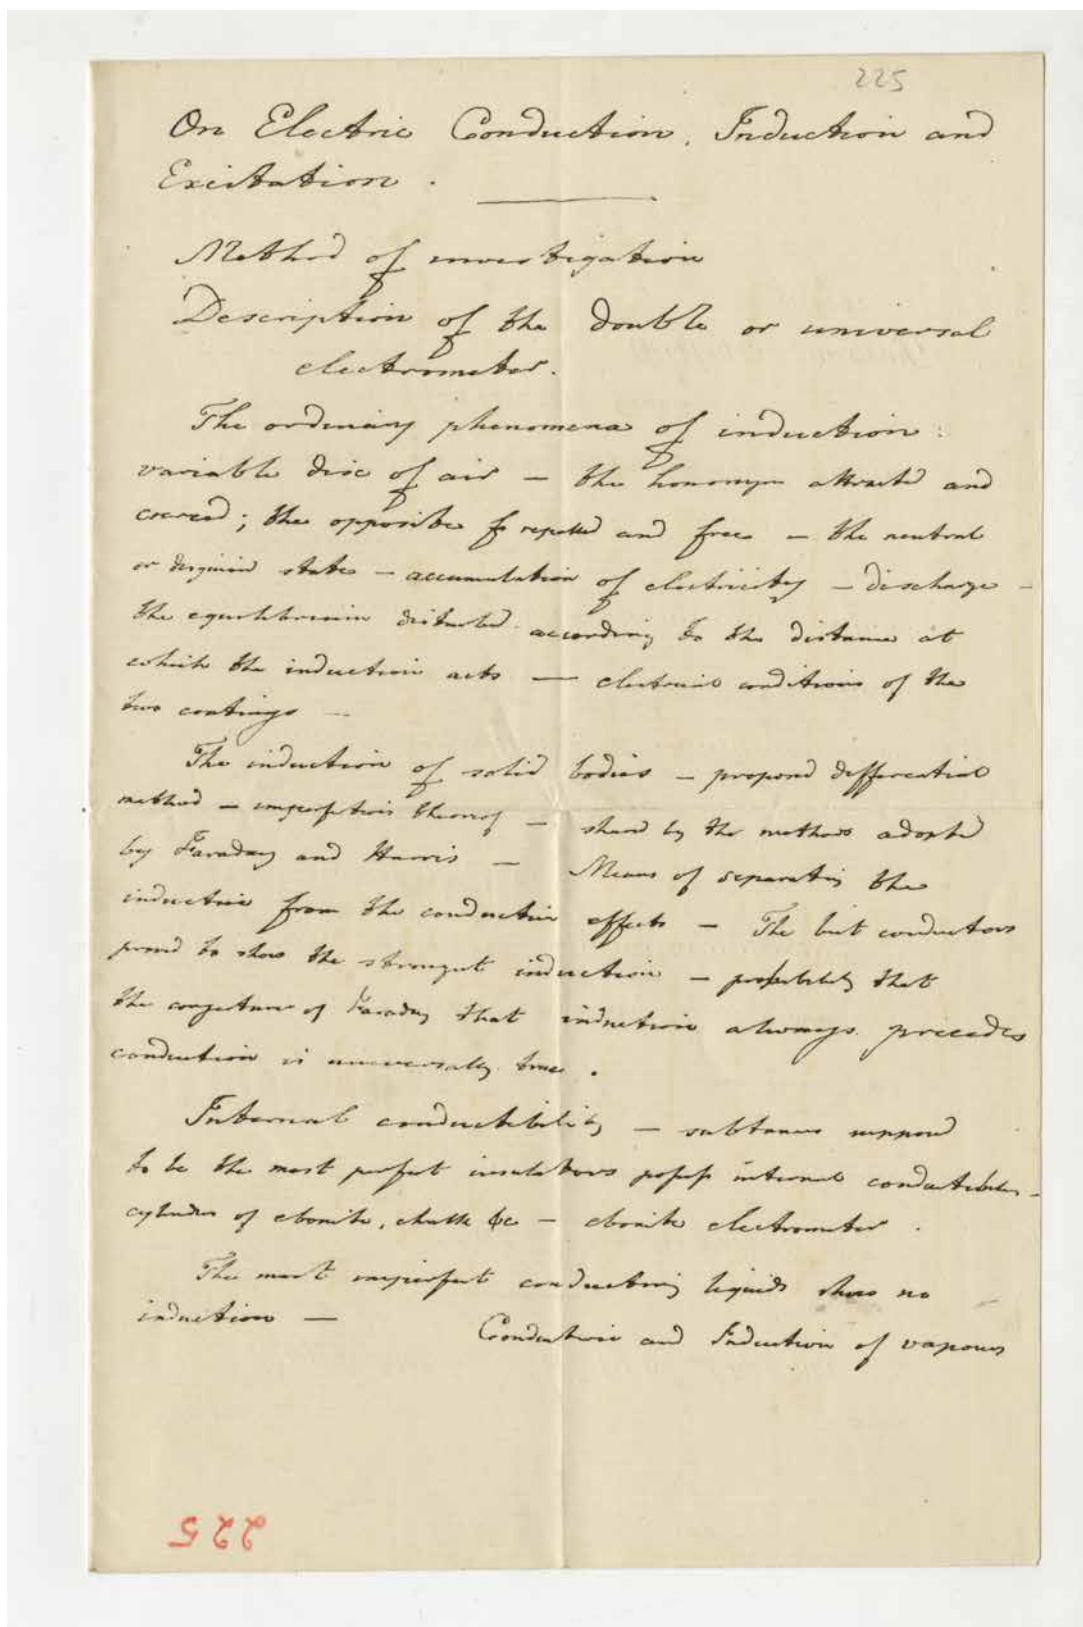 225
On Electric Conduction, Induction and
Excitation.
Method of investigation
Description of the double or universal
electrometer.
The ordinary phenomena of induction:
variable disc of air – the homonym attracted and
coerced; the opposite repelled and free – the neutral
or state – accumulation of electricity – discharge –
the equilibrium disturbed according to the distance at
which the induction acts — electrical conditions of the
two coatings —
The induction of solid bodies – proposed differential
method – imperfections thereof – shared by the methods adopted
by Faraday and Harris – Means of separating the
inductive from the conductive effects – The best conductors
proved to show the strongest induction – probability that
the conjecture of Faraday that induction always precedes
conduction is universally true.
Internal conductibility – substances supposed
to be the most perfect insulators possess internal conductibility –
cylinders of ebonite, chalk &c – ebonite electrometer.
The most imperfect conducting liquids show no
induction —
Conduction and Induction of vapours
225